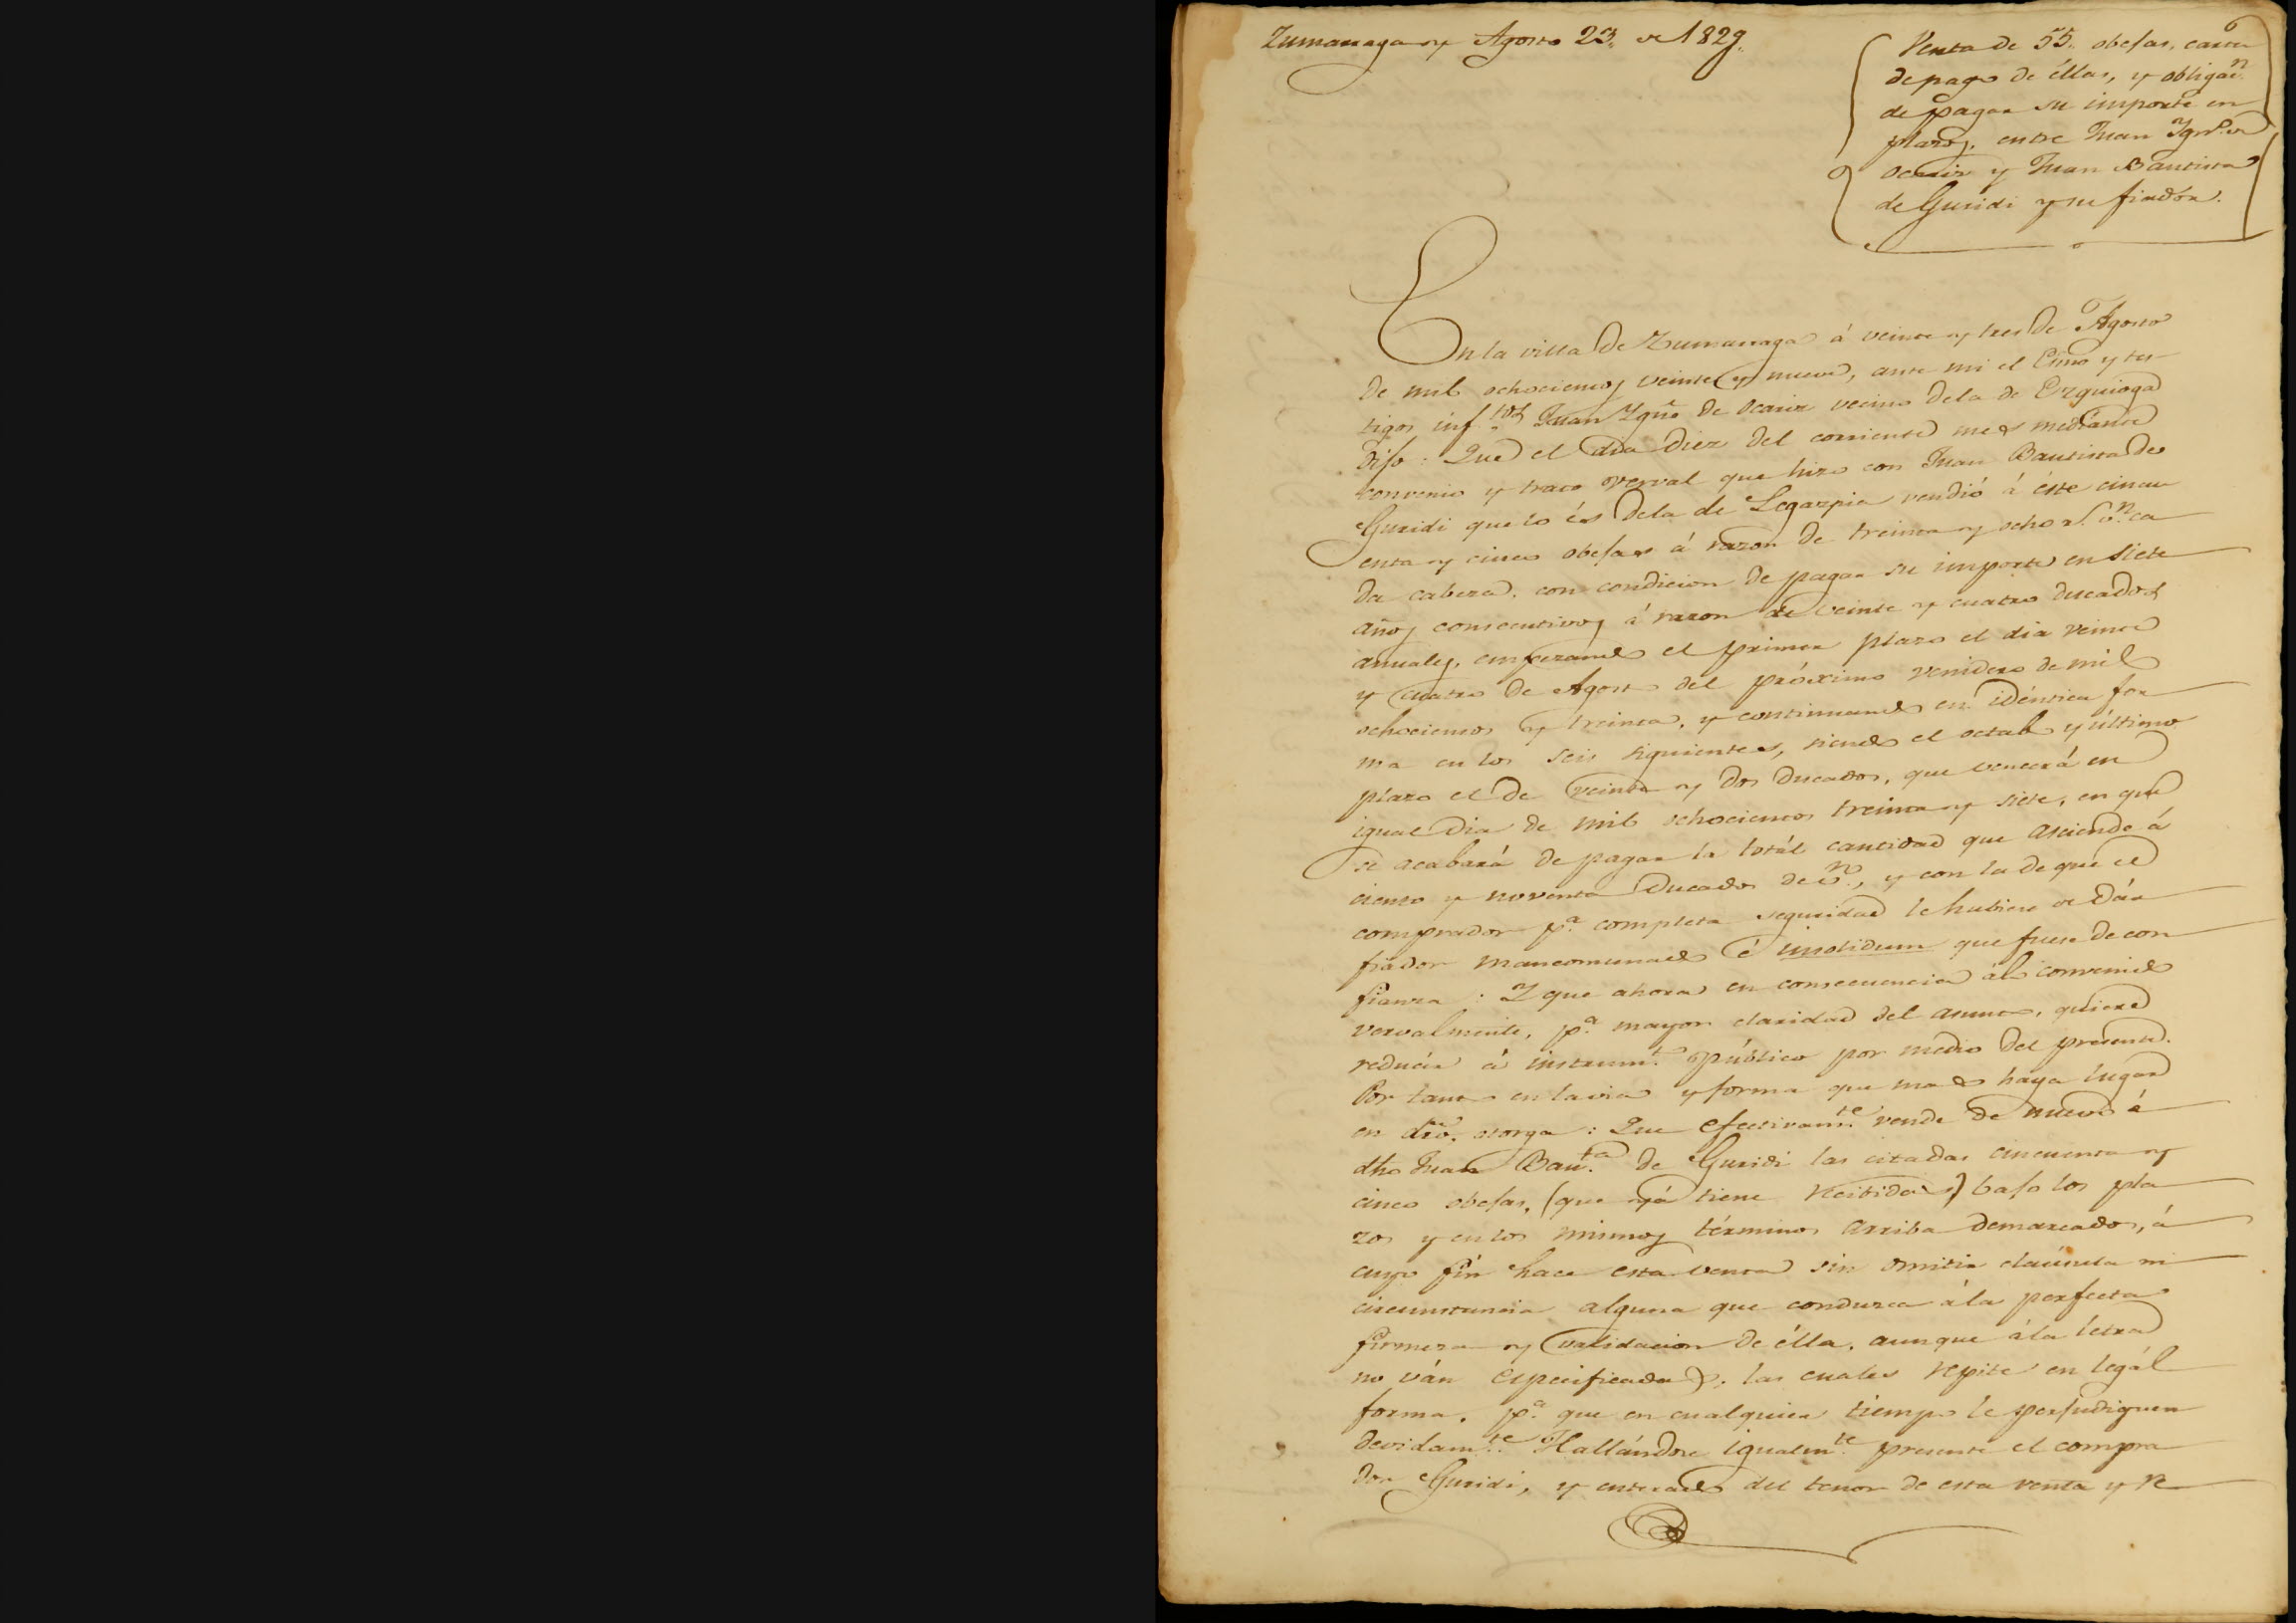 Zumarraga y Agosto 23,, de 1829,,
Venta de 55,, obejas, carta
de pago de éllas, y obligac.n
de pagar su importe en
plazos, entre Juan Ygn.o de
Ocariz y Juan Bautista
de Guridi y su fiador.
En la villa de Zumarraga á veinte y tres de Agosto
de mil ochocientos veinte y nueve, ante mi el Esño y tes-
tigos inf.tos Juan Ygño de Ocariz vecino dela de Ezquioga
dijo: Que el dia diez del corriente mes mediante
convenio y trato verval que hizo con Juan Bautista de
Guridi que lo és dela de Legazpia vendió á éste cincu
enta y cinco obejas á razon de treinta y ocho r.s v.n ca
da cabeza, con condicion de pagar su importe en siete
años consecutivos á razon de veinte y cuatro ducados
anuales, empezando el primer plazo el dia veinte
y cuatro de Agosto del próximo venidero de mil
ochocientos y treinta, y continuando en idéntica for
ma en los seis siguientes, siendo el octabo y último
plazo el de veinte y dos ducados, que vencerá en
igual dia de mil ochocientos treinta y siete, en que
se acabará de pagar la totál cantidad que asciende á
ciento y noventa ducados de v.n, y con la de que el
comprador p.a completa seguridad le hubiese de dár
fiador mancomunado é insolidum que fuese de con
fianza: Y que ahora en consecuencia álo convenido
vervalmente, p.a mayor claridad del asunto, quiere
reducir á instrum.to público por medio del presente.
Por tanto en la via y forma que mas haya lugar
en dro. otorga: Que efectivam.te vende de nuevo á
dho Juan Bau.ta de Guridi las citadas cincuenta y
cinco obejas, (que yá tiene recibidas) bajo los pla
zos y en los mismos términos arriba demarcados, á
cuyo fin hace esta venta sin omitir claúsula ni
circunstancia alguna que conduzca ála perfecta
firmeza y validacion de élla, aunque ála letra
no ván especificadas, las cuales repite en legál
forma, p.a que en cualquier tiempo le perjudiquen
devidam.te Hallándose igualm.te presente el compra
dor Guridi, y enterado del tenor de esta venta y re